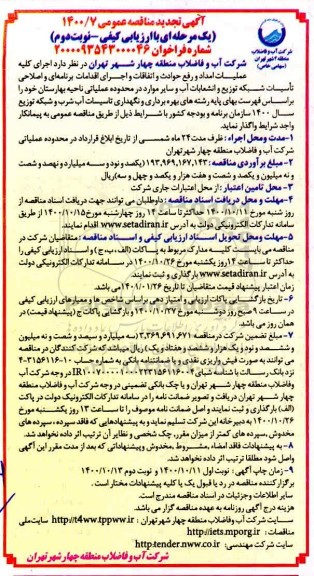 آگهی تجدید مناقصه عمومی ۱۴۰۰/۷
(یک مرحله ای با ارزیابی کیفی - نوبت دوم)
شماره فراخوان ۲۰۰۰۰۹۳۵۴۳۰۰۰۰۴۶
شرکت آب و فاضلاب
منطقه ۴ شهر تهران
(سهامی خاص)
شرکت آب و فاضلاب منطقه چهار شهر تهران در نظر دارد اجرای کلیه
عملیات امداد و رفع حوادث و اتفاقات و اجرای اقدامات برنامه‌ای و اصلاحی
تأسیسات شبکه توزیع و انشعابات آب و سایر موارد در محدوده عملیاتی ناحیه بهارستان خود را
براساس فهرست بهای پایه رشته های بهره برداری و نگهداری تاسیسات آب شرب و شبکه توزیع
سال ۱۴۰۰ سازمان برنامه و بودجه کشور با شرایط ذیل از طریق مناقصه عمومی به پیمانکار
واجد شرایط واگذار نماید.
۱- مدت و محل اجراء: ظرف مدت ۲۴ ماه شمسی از تاریخ ابلاغ قرارداد در محدوده عملیاتی
شرکت آب و فاضلاب منطقه چهار شهر تهران
۲- مبلغ برآوردی مناقصه: ۱۹۳,۹۶۹,۱۶۷,۱۴۳ (یکصد و نود و سه میلیارد و نهصد و شصت
و نه میلیون و یکصد و شصت و هفت هزار و یکصد و چهل و سه) ریال
۳- محل تامین اعتبار: از محل اعتبارات جاری شرکت
۴- مهلت و محل دریافت اسناد مناقصه: داوطلبان می توانند جهت دریافت اسناد مناقصه از
روز شنبه مورخ ۱۴۰۰/۱۰/۱۱ حداکثر تا ساعت ۱۴ روز چهارشنبه مورخ ۱۴۰۰/۱۰/۱۵ از طریق
سامانه تدارکات الکترونیکی دولت به آدرس www.setadiran.ir اقدام نمایند.
۵- مهلت و محل تحویل اسناد ارزیابی کیفی و اسناد مناقصه: متقاضیان شرکت در
مناقصه می بایست کلیه مدارک مربوط به پاکات (الف، ب، ج) و اسناد ارزیابی کیفی را
حداکثر تا ساعت ۱۴ روز یکشنبه مورخ ۱۴۰۰/۱۰/۲۶ در سامانه تدارکات الکترونیکی دولت
به آدرس www.setadiran.ir بارگذاری و ثبت نمایند.
زمان اعتبار پیشنهاد قیمت متقاضیان تا تاریخ ۱۴۰۱/۰۱/۲۶ می باشد.
۶- تاریخ بازگشایی پاکات ارزیابی و امتیاز دهی براساس شاخص ها و معیارهای ارزیابی کیفی
در ساعت ۹ صبح روز دوشنبه مورخ ۱۴۰۰/۱۰/۲۷ و بازگشایی پاکات ج (پیشنهاد قیمت) در
همان روز می باشد.
۷- مبلغ تضمین شرکت در مناقصه ۳,۳۶۹,۶۹۱,۶۷۱ (سه میلیارد و سیصد و شصت و نه میلیون
و ششصد و نود و یک هزار و ششصد و هفتاد و یک) ریال میباشد که شرکت کنندگان در مناقصه
می توانند به صورت فیش واریزی نقدی و یا ضمانتنامه بانکی به شماره حساب
نزد بانک رسالت با شناسه شبای در وجه شرکت آب
وفاضلاب منطقه چهار شهر تهران و یا چک بانکی تضمینی در وجه شرکت آب و فاضلاب منطقه
چهار شهر تهران دریافت و تصویر ضمانت نامه را در سامانه تدارکات الکترونیک دولت در پاکت
(الف) بارگذاری و ثبت نمایند و اصل ضمانت نامه موصوف را تا ساعت ۱۳ روز یکشنبه مورخ
۱۴۰۰/۱۰/۲۶ به دبیرخانه این شرکت تسلیم نماید و به پیشنهادهایی که فاقد سپرده، سپرده های
مخدوش، سپرده های کمتر از میزان مقرر، چک شخصی و نظایر آن ترتیب اثر داده نخواهد شد.
۸- به پیشنهادات فاقد امضاء، مشروط، مخدوش و پیشنهاداتی که بعد از مدت مقرر این آگهی
واصل شود مطلقا ترتیب اثر داده نخواهد شد.
۹- زمان چاپ آگهی: نوبت اول ۱۴۰۰/۱۰/۱۱ و نوبت دوم ۱۴۰۰/۱۰/۱۳
برگزار کننده مناقصه در رد یا قبول یک یا کلیه پیشنهادات مختار است.
سایر اطلاعات و جزئیات در اسناد مناقصه مندرج است.
هزینه درج آگهی روزنامه به عهده مناقصه گزار می باشد.
سایت شرکت آب و فاضلاب منطقه چهار شهر تهران: http://t4ww.tpww.ir سایت ملی
مناقصات: http://iets.mporg.ir
سایت شرکت مهندسی: http:tender.nww.co.ir
شرکت آب و فاضلاب منطقه چهار شهر تهران